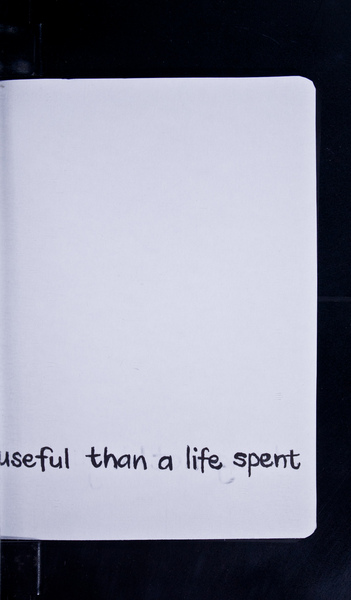 useful than a life spent